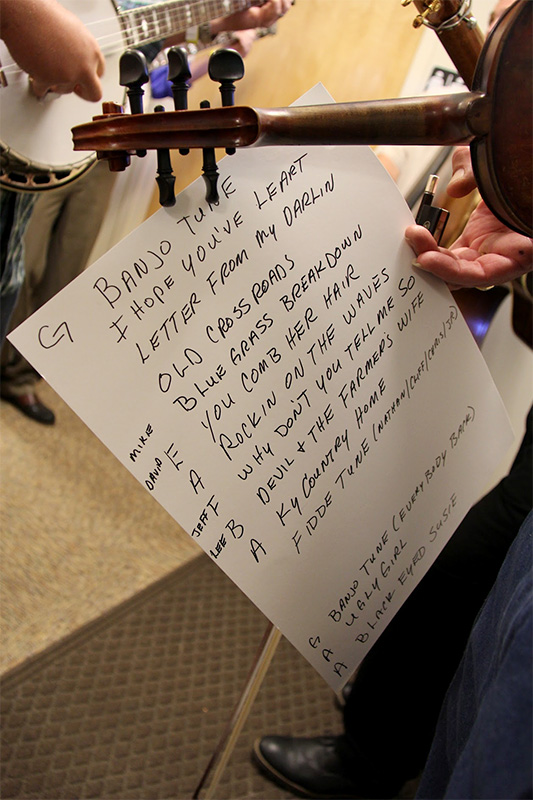 G BANJO TUNE
I HOPE YOU'VE LEART
LETTER FROM MY DARLIN
OLD CROSSROADS
MIKE BLUE GRASS BREAKDOWN
DAVID E YOU COMB HER HAIR
A ROCKIN ON THE WAVES
JEFF F WHY DON'T YOU TELL ME SO
LEE B DEVIL & THE FARMERS WIFE
A KY COUNTRY HOME
FIDDE TUNE (NATHAN/CLIFF/CHRIS/JP)
G BANJO TUNE (EVERYBODY BACK)
A UGLY GIRL
A BLACK EYED SUSIE